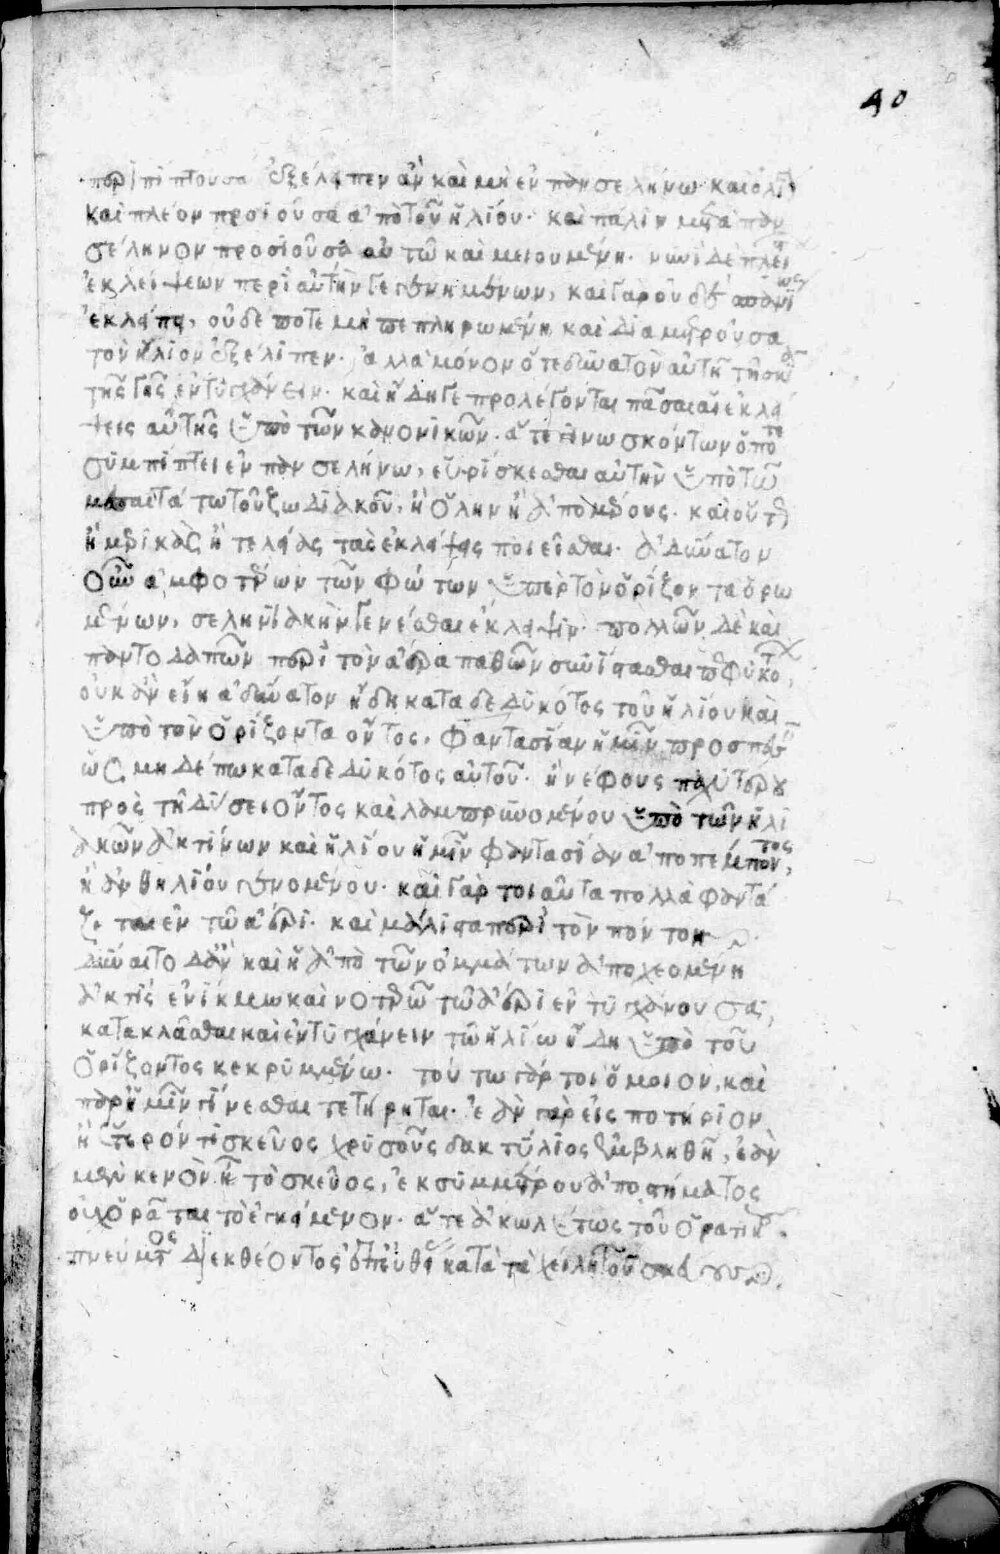 40
περιπίπτουσα ἐξέλειπεν ἂν καὶ μὴ ἐν πανσελήνῳ· καὶ
καὶ πλέον προϊοῦσα ἀπὸ τοῦ ἡλίου· καὶ πάλιν μετὰ τὴν
σέληνον προσιοῦσα αὐτῷ καὶ μειουμένη· νυνὶ δὲ πλει
ἐκλείψεων περὶ αὐτὴν γεγενημένων, καὶ γὰρ οὐδ'
ἐκλείπει, οὐδέποτε μὴ πεπληρωμένη καὶ διαμετροῦσα
τὸν ἥλιον ἐξέλιπεν· ἀλλὰ μόνον ὅτε δυνατὸν αὐτῇ τῇ σκιᾷ
τῆς γῆς ἐντυγχάνειν· καὶ ἤδη γε προλέγονται πᾶσαι αἱ ἐκλεί
ψεις αὐτῆς ὑπὸ τῶν κανονικῶν· ἅτε γινωσκόντων ὅτι ποτε
συμπίπτει ἐν πανσελήνῳ, εὑρίσκεσθαι αὐτὴν ὑπὸ τῷ
μεσαιτάτῳ τοῦ ζωδιακοῦ, ἢ ὅλην ἢ ἀπὸ μέρους· καὶ οὕτως
ἢ μερικὰς ἢ τελείας τὰς ἐκλείψεις ποιεῖσθαι· ἀδύνατον
οὖν ἀμφοτέρων τῶν φώτων ὑπὲρ τὸν ὁρίζοντα ὁρω
μένων, σεληνιακὴν γενέσθαι ἔκλειψιν· πολλῶν δὲ καὶ
παντοδαπῶν περὶ τὸν ἀέρα παθῶν συνίστασθαι πεφυκότων,
οὐκ ἂν εἴη ἀδύνατον ἤδη καταδεδυκότος τοῦ ἡλίου καὶ
ὑπὸ τὸν ὁρίζοντα ὄντος, φαντασίαν ἡμῖν προσπεσεῖν
ὡς μηδέπω καταδεδυκότος αὐτοῦ· ἢ νέφους παχυτέρου
πρὸς τῇ δύσει ὄντος καὶ λαμπρυνομένου ὑπὸ τῶν ἡλι
ακῶν ἀκτίνων καὶ ἡλίου ἡμῖν φαντασίαν ἀποπέμποντος,
ἢ ἀνθηλίου γενομένου· καὶ γὰρ τοιαῦτα πολλὰ φαντά
ζεται ἐν τῷ ἀέρι· καὶ μάλιστα περὶ τὸν πόντον
δύναιτο δ' ἂν καὶ ἡ ἀπὸ τῶν ὀμμάτων ἀποχεομένη
ἀκτὶς ἐνίκμῳ καὶ νοτερῷ τῷ ἀέρι ἐντυγχάνουσα,
κατακλᾶσθαι καὶ ἐντυγχάνειν τῷ ἡλίῳ ἤδη ὑπὸ τοῦ
ὁρίζοντος κεκρυμμένῳ· τούτῳ γάρ τοι ὅμοιον, καὶ
παρ' ἡμῖν γίνεσθαι τετήρηται· ἐὰν γὰρ εἰς ποτήριον
ἢ ἕτερόν τι σκεῦος χρυσοῦς δακτύλιος ἐμβληθῇ, ἐὰν
μὲν κενὸν ᾖ τὸ σκεῦος, ἐκ συμμέτρου ἀποστήματος
οὐχ ὁρᾶται τὸ ἐγκείμενον· ἅτε ἀκωλύτως τοῦ ὁρατικοῦ
πνεύματος διεκθέοντος ἐπ' εὐθὺ κατὰ τὰ χείλη τοῦ σκεύους